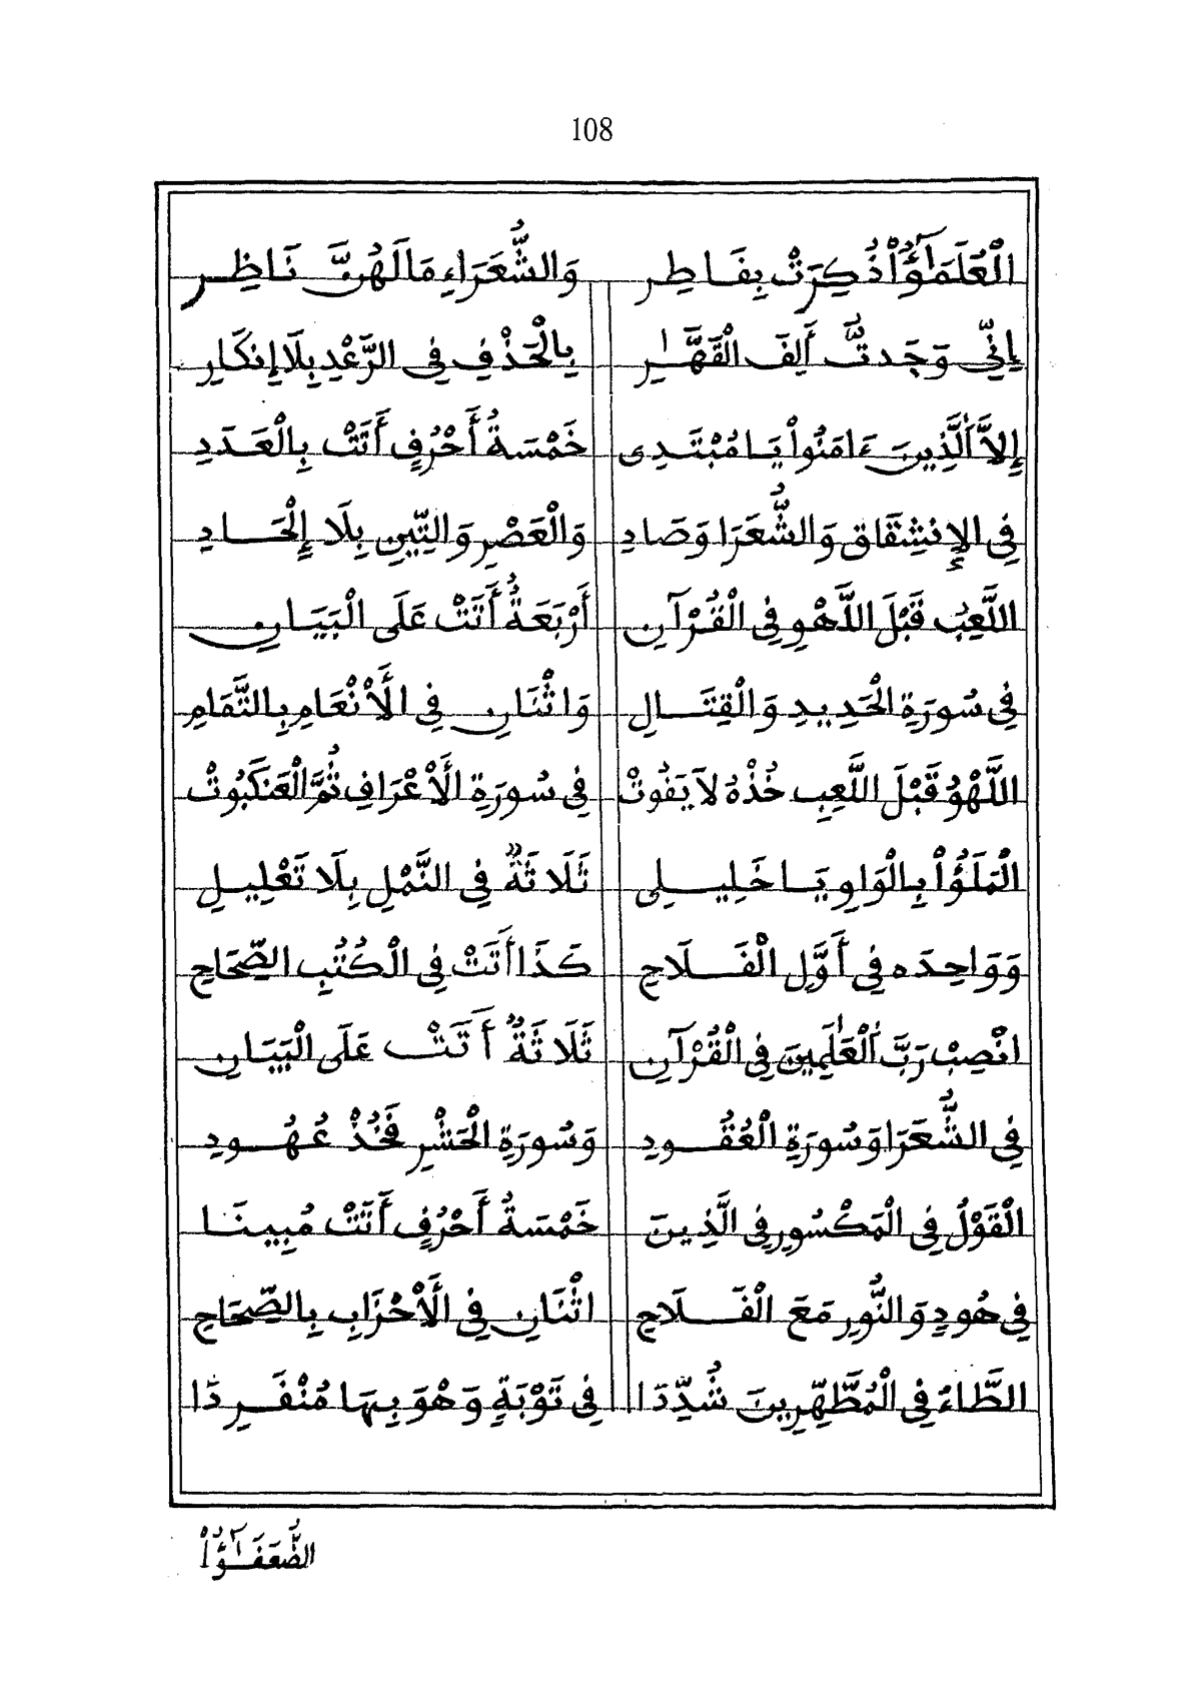 108
الْعُلَمَٰٓؤُاْ ذُكِرَتْ بِفَاطِرِ وَالشُّعَرَاءِ مَالَهُنَّ نَاظِرِ
إِنِّي وَجَدتُّ أَلِفَ الْقَهَّٰرِ بِالْحَذْفِ فِى الرَّعْدِ بِلَا إِنكَارِ
إِلاَّ اَلَّذِينَ ءَامَنُواْ يَا مُبْتَدِى خَمْسَةُ أَحْرُفٍ أَتَتْ بِالْعَدَدِ
فِى الإِنشِقَاقِ وَالشُّعَرَا وَصَادِ وَالْعَصْرِ وَالتِّينِ بِلَا إِلْحَادِ
اللَّعِبُ قَبْلَ اللَّهْوِ فِى الْقُرْآنِ أَرْبَعَةُ أَتَتْ عَلَى الْبَيَانِ
فِى سُورَةِ الْحَدِيدِ وَالْقِتَالِ وَاثْنَانِ فِى الَأنْعَامِ بِالتَّمَامِ
اللَّهْوُ قَبْلَ اللَّعِبِ خُذْهُ لَا يَفُوتْ فِى سُورَةِ الَأعْرَافِ ثُمَّ الْعَنكَبُوتْ
الْمَلَؤُاْ بِالْوَاوِ يَا خَلِيلِى ثَلَاثَةٌ فِى النَّمْلِ بِلَا تَعْلِيلِ
وَوَاحِدَه فِى أَوَّلِ الْفَلَاحِ كَذَا أَتَتْ فِى الْكُتُبِ الصِّحَاحِ
انْصِبْ رَبَّ اَلْعَٰلَمِينَ فِى الْقُرْآنِ ثَلَاثَةٌ أَتَتْ عَلَى الْبَيَانِ
فِى الشُّعَرَا وَسُورَةِ الْعُقُودِ وَسُورَةِ الْحَشْرِ فَخُذْ عُهُودِ
الْقَوْلُ فِى الْمَكْسُورِ فِى الَّذِينَ خَمْسَةُ أَحْرُفٍ أَتَتْ مُبِينَا
فِى هُودٍ وَالنُّورِ مَعَ الْفَلَاحِ اثْنَانِ فِى الَأحْزَابِ بِالصِّحَاحِ
الطَّاءُ فِى الْمُطَّهِّرِينَ شُدِّدَا فِى تَوْبَةٍ وَهْوَ بِهَا مُنْفَرِدَا
الضُّعَفَٰٓؤُاْ